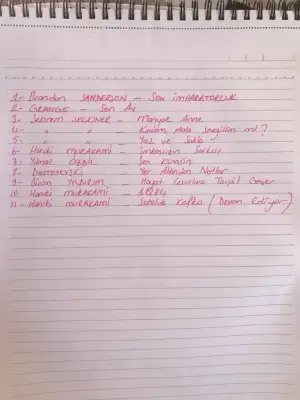 1- Brandon SANDERSON - Son İmparatorluk
2- GRANGE - Son Av
3- Sebnem ISIGUZEL - Manipe Anne
4- " " - Kadın Hala Sevgilim mi?
5- " " - Yaz ve Sakla
6- Haruki MURAKAMI - İmkansızın Şarkısı
7- Yılmaz Özdil - Sen Kimsin
8- DOSTOYEVSKİ - Yer Altından Notlar
9- YILDIRIM - Hayat Cesurlara Torpil Geçer
10- Haruki MURAKAMI - 1Q84
11- Haruki MURAKAMI - Sahilde Kafka (Devam Ediyor)